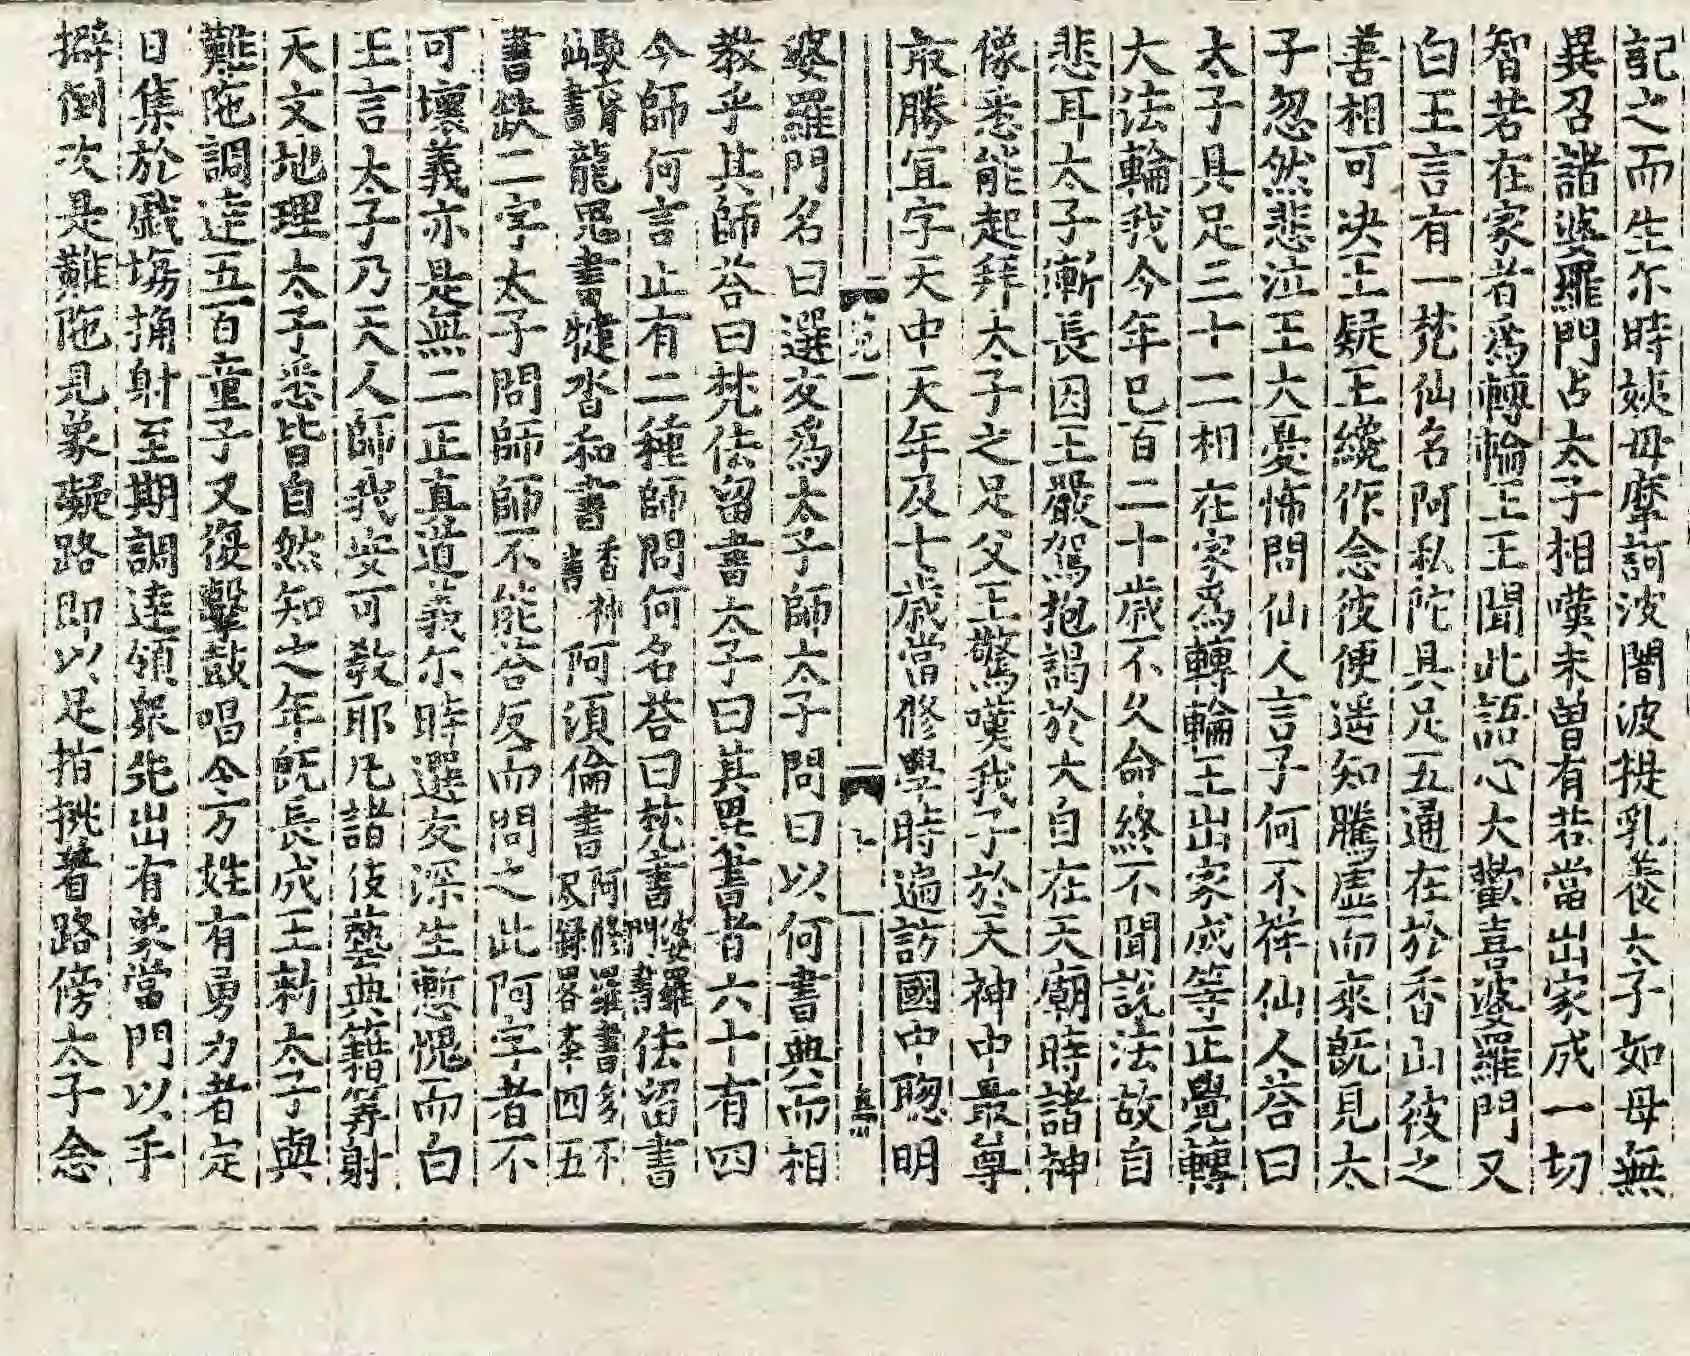 記之而生尓時姨母摩訶波闍波提乳養太子如母無
異召諸婆羅門占太子相嘆未曾有若當出家成一切
智若在家者爲轉輪王王聞此語心大歡喜婆羅門又
白王言有一梵仙名阿私陀具足五通在於香山彼之
善相可決王疑王纔作念彼便遥知騰虛而來旣見太
子忽然悲泣王大憂怖問仙人言子何不祥仙人荅曰
太子具足三十二相在家爲轉輪王出家成等正覺轉
大法輪我今年已百二十歲不久命終不聞說法故自
悲耳太子漸長因王嚴駕抱謁於大自在天廟時諸神
像悉能起拜太子之足父王驚嘆我子於天神中最尊
㝡勝宜字天中天年及十歲當修學時遍訪國中聦明
婆羅門名曰選友爲太子師太子問曰以何書典而相
教乎其師荅曰梵佉留書太子曰其異書者六十有四
今師何言止有二種師問何名荅曰梵書婆羅門書佉留書
龍鬼書揵沓和書香神書阿須倫書阿修羅書多不尽錄畧李四五
書缺二字太子問師師不能荅反而問之此阿字者不
可壞義亦是無二正真道義尓時選友深生慙愧而白
王言太子乃天人師我安可敎耶凡諸伎藝典籍筭射
天文地理太子悉皆自然知之年旣長成王勑太子與
難陁調達五百童子又復擊鼓唱令万姓有勇力者定
日集於戱場捔射至期調達領衆先出有象當門以手
擗倒次是難陁見象礙路即以足指挑著路傍太子念